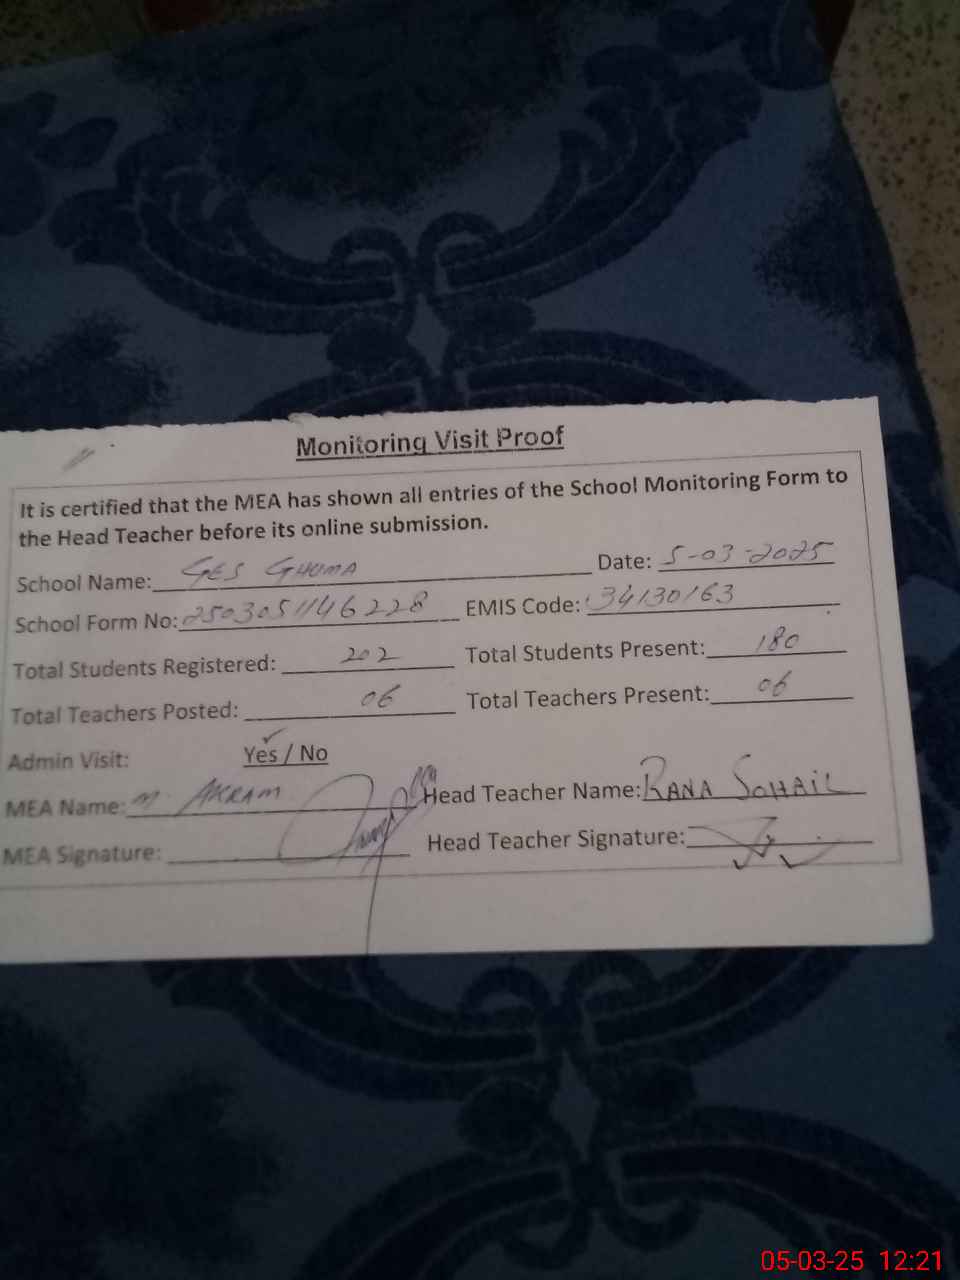 Monitoring Visit Proof
It is certified that the MEA has shown all entries of the School Monitoring Form to
the Head Teacher before its online submission.
School Name: GES GHUMA Date: 5-03-2025
School Form No: 2503051146228 EMIS Code: 34130163
Total Students Registered: 202 Total Students Present: 180
Total Teachers Posted: 06 Total Teachers Present: 06
Admin Visit: Yes / No
MEA Name: M. AKRAM Head Teacher Name: RANA SOHAIL
MEA Signature: Head Teacher Signature:
05-03-25 12:21